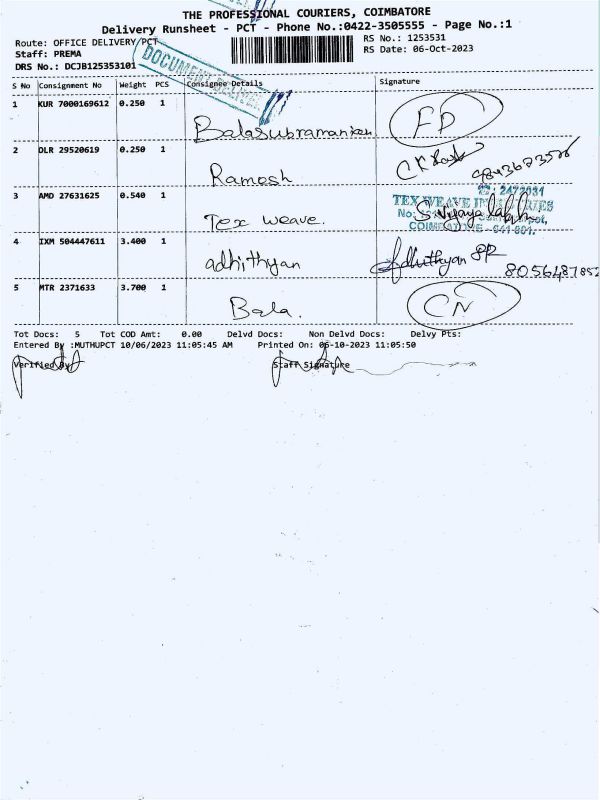 THE PROFESSIONAL COURIERS, COIMBATORE
Delivery Runsheet - PCT - Phone No.:0422-3505555 - Page No.:1
Route: OFFICE DELIVERY/PCT RS No.: 1253531
Staff: PREMA RS Date: 06-Oct-2023
DRS No.: DCJB125353101
DOCUMENT
S No Consignment No Weight PCS Consignee Details Signature
1 KUR 7000169612 0.250 1 Balasubramanian FD
2 DLR 29520619 0.250 1 Ramesh
3 AMD 27631625 0.540 1 Tex Weave.
☎: 2472931
TEX WEAVE INDUSTRIES
COIMBATORE - 641 001.
4 IXM 504447611 3.400 1 adhithyan
5 MTR 2371633 3.700 1 Bala. CN
Tot Docs: 5 Tot COD Amt: 0.00 Delvd Docs: Non Delvd Docs: Delvy Pts:
Entered By :MUTHUPCT 10/06/2023 11:05:45 AM Printed On: 06-10-2023 11:05:50
Verified By Staff Signature